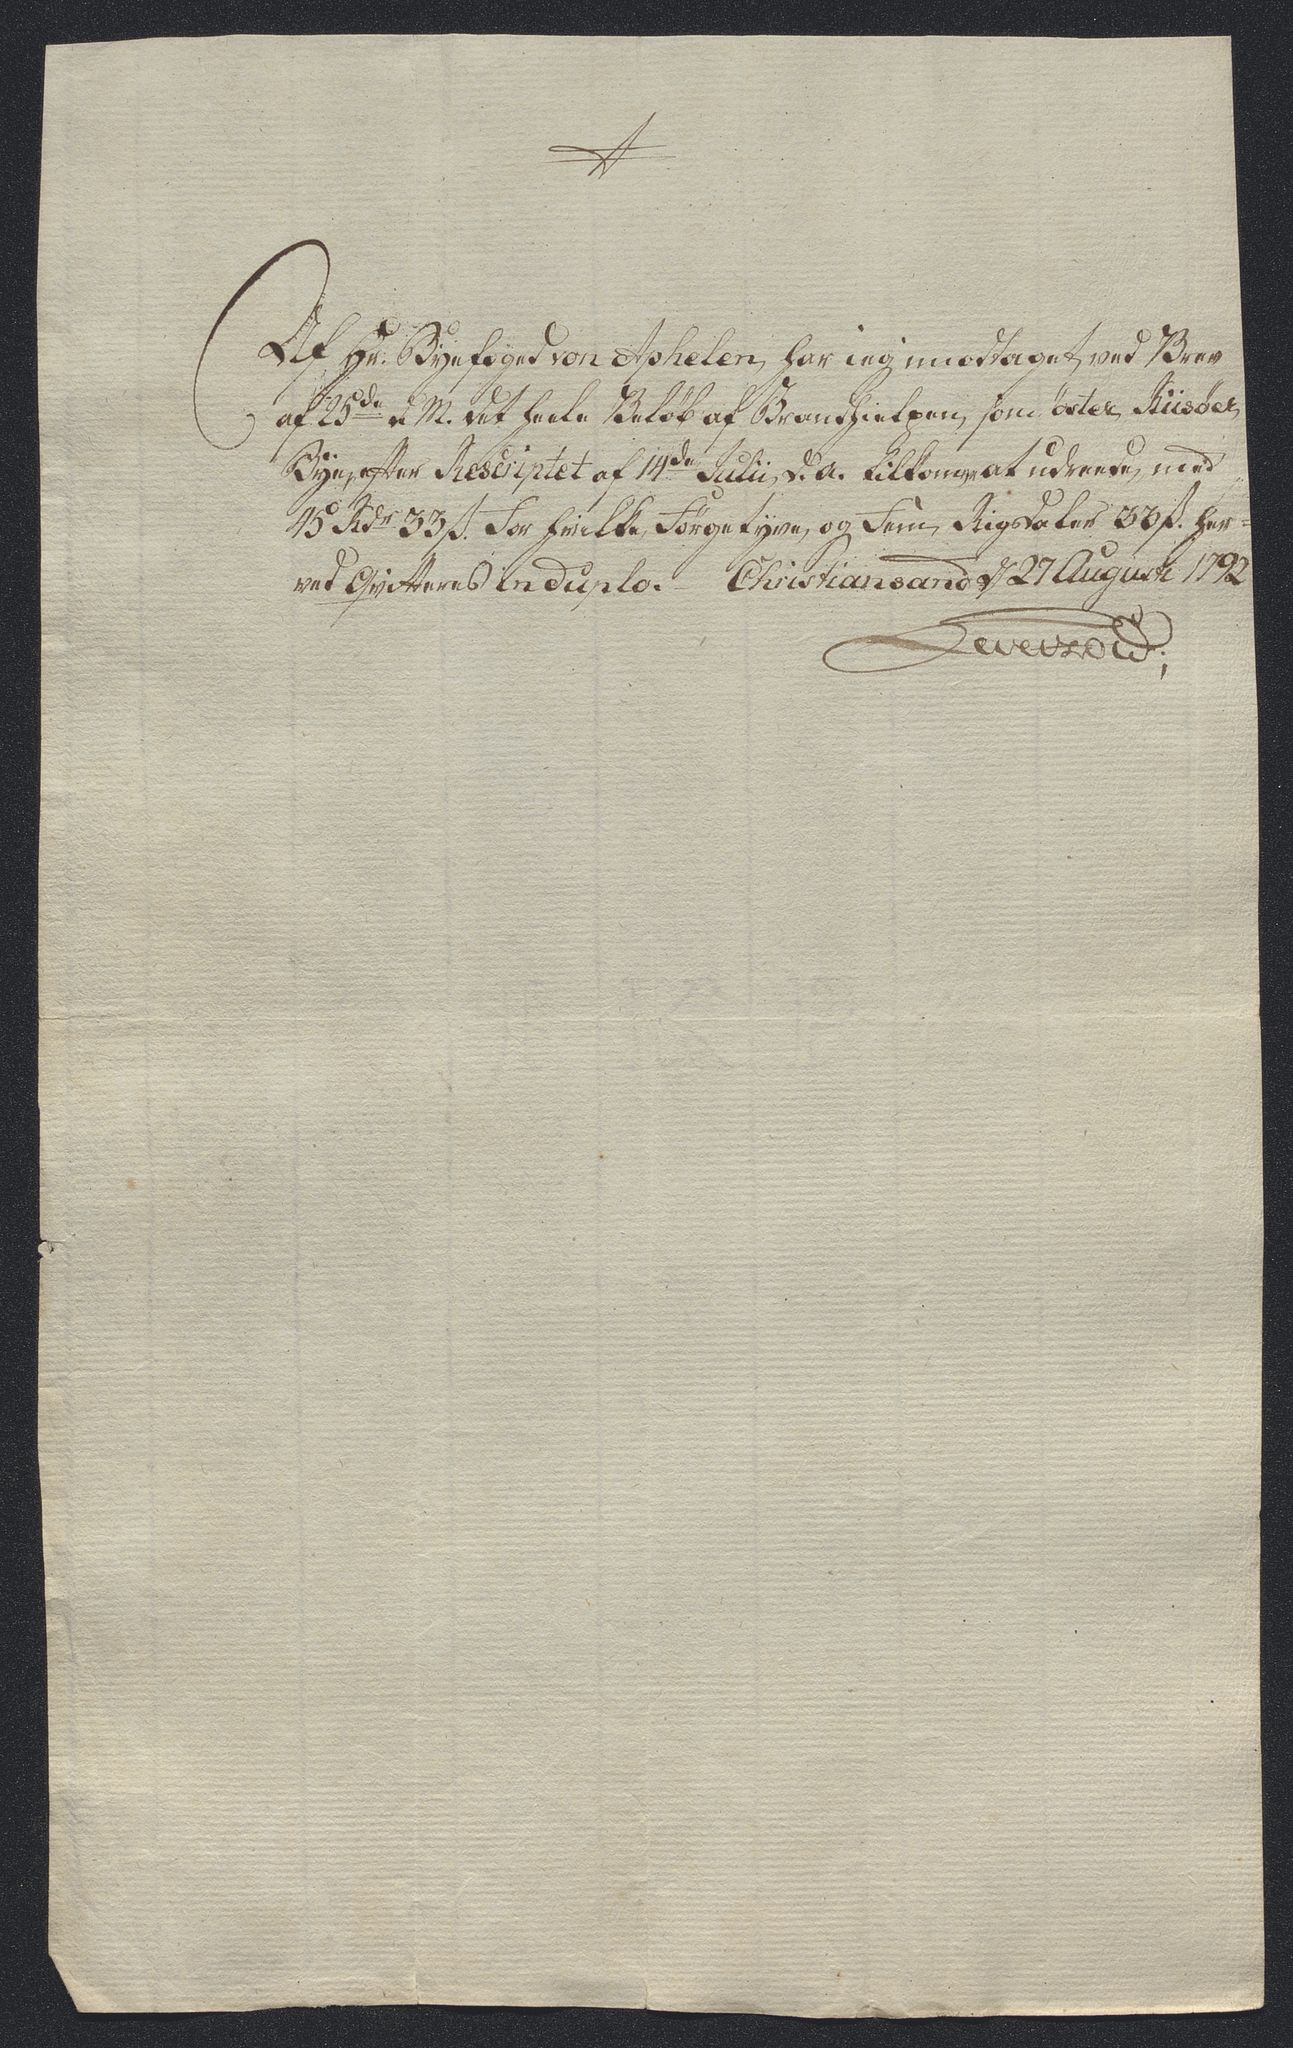 A
Af Hr: Byefoged von Aphelen, har ieg modtaget, ved Brev
af 25de d: M. det heele Beløb af Brandhielpen, som öster Riisöer
Bye, efter Rescriptet af 14de Julii d: A. tilkom at udreede, med
45 Rdr 33 ß. For hvilke, Förgetyve, og Fem, Rigsdaler 33 ß. her=
ved Qvitteres in duplo. Christiansand d 27 August 1792